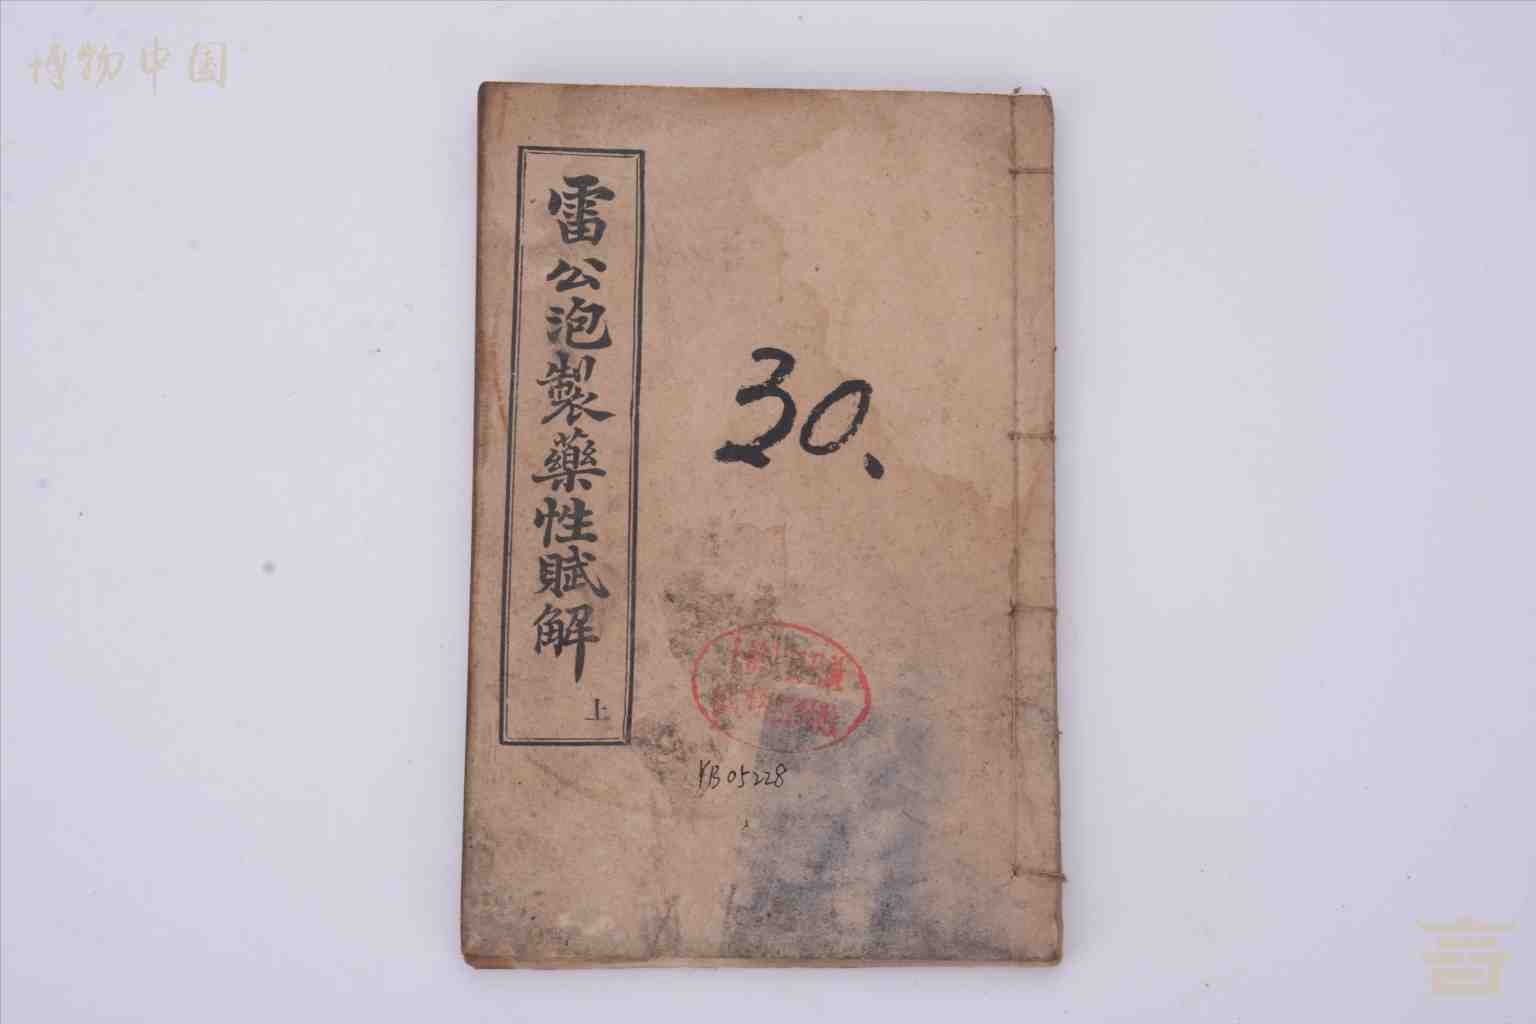 博物中国
雷公泡製藥性賦解
上
30、
YB05228